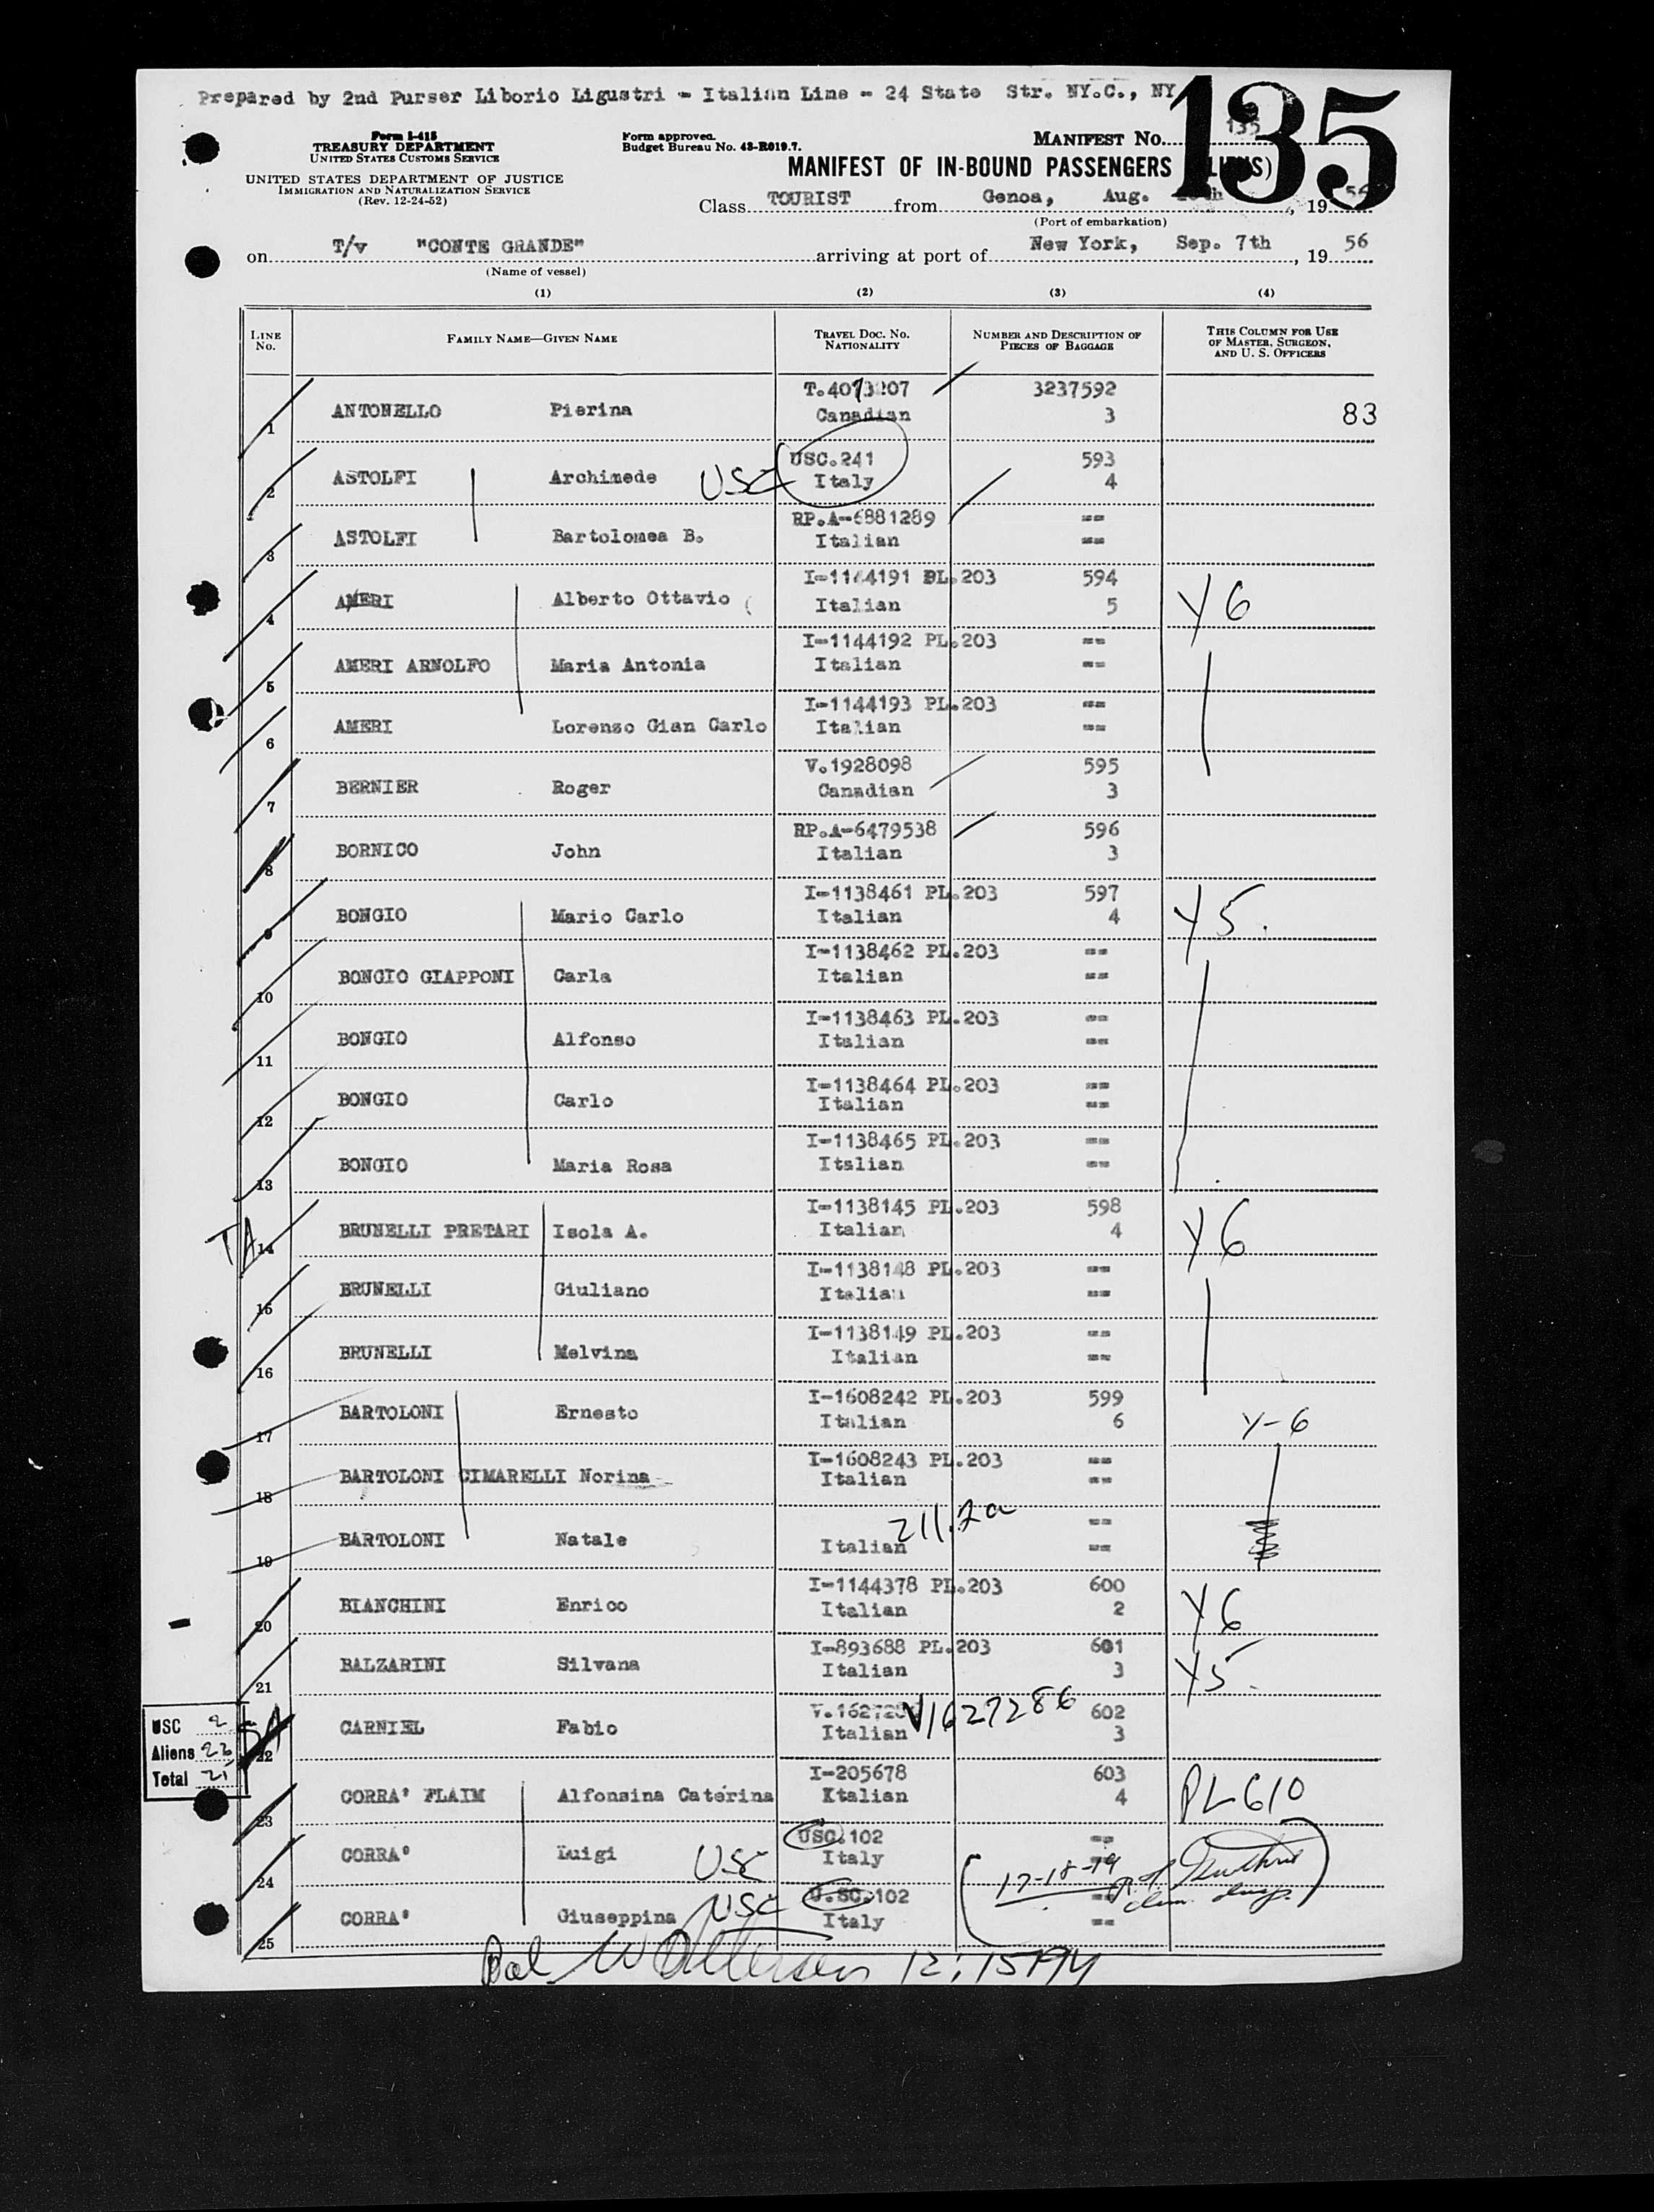 Prepared by 2nd Purser Liborio Ligustri - Italian Line - 24 State Str. NY.C., NY
135
Form I-418
TREASURY DEPARTMENT
UNITED STATES CUSTOMS SERVICE
UNITED STATES DEPARTMENT OF JUSTICE
IMMIGRATION AND NATURALIZATION SERVICE
(Rev. 12-24-52)
Form approved.
Budget Bureau No. 43-R019.7.
MANIFEST NO. 135
MANIFEST OF IN-BOUND PASSENGERS
Class TOURIST from Genoa, Aug. , 19 56
(Port of embarkation)
on T/v "CONTE GRANDE" arriving at port of New York, Sep. 7th , 19 56
(Name of vessel)
(1) (2) (3) (4)
LINE NO. FAMILY NAME—GIVEN NAME TRAVEL DOC. NO. NATIONALITY NUMBER AND DESCRIPTION OF PIECES OF BAGGAGE THIS COLUMN FOR USE OF MASTER, SURGEON, AND U. S. OFFICERS
T.4073207 3237592
1 ANTONELLO Pierina Canadian 3 83
USC.241 593
2 ASTOLFI Archimede USC Italy 4
RP.A-6881289 --
3 ASTOLFI Bartolomea B. Italian --
I-1144191 PL.203 594
4 AMERI Alberto Ottavio Italian 5 Y6
I-1144192 PL.203 --
5 AMERI ARNOLFO Maria Antonia Italian --
I-1144193 PL.203 --
6 AMERI Lorenzo Gian Carlo Italian --
V.1928098 595
7 BERNIER Roger Canadian 3
RP.A-6479538 596
8 BORNICO John Italian 3
I-1138461 PL.203 597
9 BONGIO Mario Carlo Italian 4 Y5.
I-1138462 PL.203 --
10 BONGIO GIAPPONI Carla Italian --
I-1138463 PL.203 --
11 BONGIO Alfonso Italian --
I-1138464 PL.203 --
12 BONGIO Carlo Italian --
I-1138465 PL.203 --
13 BONGIO Maria Rosa Italian --
I-1138145 PL.203 598
TA 14 BRUNELLI PRETARI Isola A. Italian 4 Y6
I-1138148 PL.203 --
15 BRUNELLI Giuliano Italian --
I-1138149 PL.203 --
16 BRUNELLI Melvina Italian --
I-1608242 PL.203 599
17 BARTOLONI Ernesto Italian 6 Y-6
I-1608243 PL.203 --
18 BARTOLONI CIMARELLI Norina Italian --
211.2a --
19 BARTOLONI Natale Italian --
I-1144378 PL.203 600
20 BIANCHINI Enrico Italian 2 Y6
I-893688 PL.203 601
21 BALZARINI Silvana Italian 3 Y5.
V1627286 602
22 CARNIEL Fabio Italian 3
USC 2
Aliens 23
Total 25
I-205678 603
23 CORRA' FLAIM Alfonsina Caterina Italian 4 PL610
USC.102 --
24 CORRA' Luigi USC Italy 17-18-19
U.SC.102 --
25 CORRA' Giuseppina USC Italy --
12:15PM